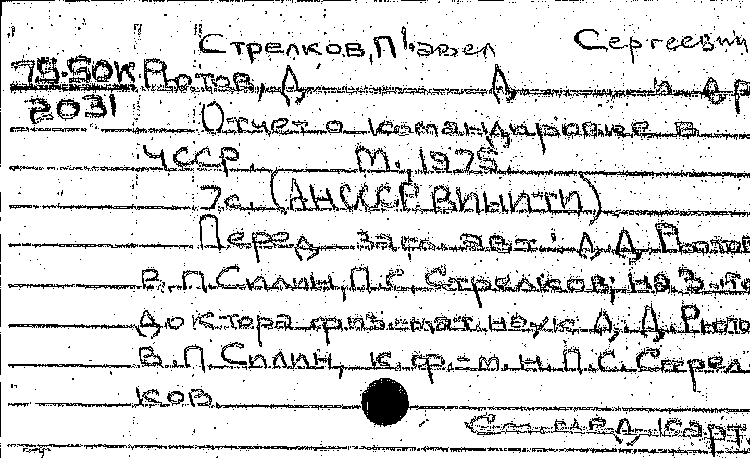 Стрелков, Павел Сергеевич
75-50К Рютов, Д. Д. и др
2031
Отчет о командировке в
ЧССР. М., 1975.
7с. (АНСССР. ВИНИТИ)
Перед загл. авт.: Д.Д. Рютов
В.П. Силин, П.С. Стрелков; На 3-й с
Доктора физ.-мат. наук Д.Д. Рюто
В.П. Силин, к.ф.-м.н. П.С. Стрел-
ков.
См. след карт